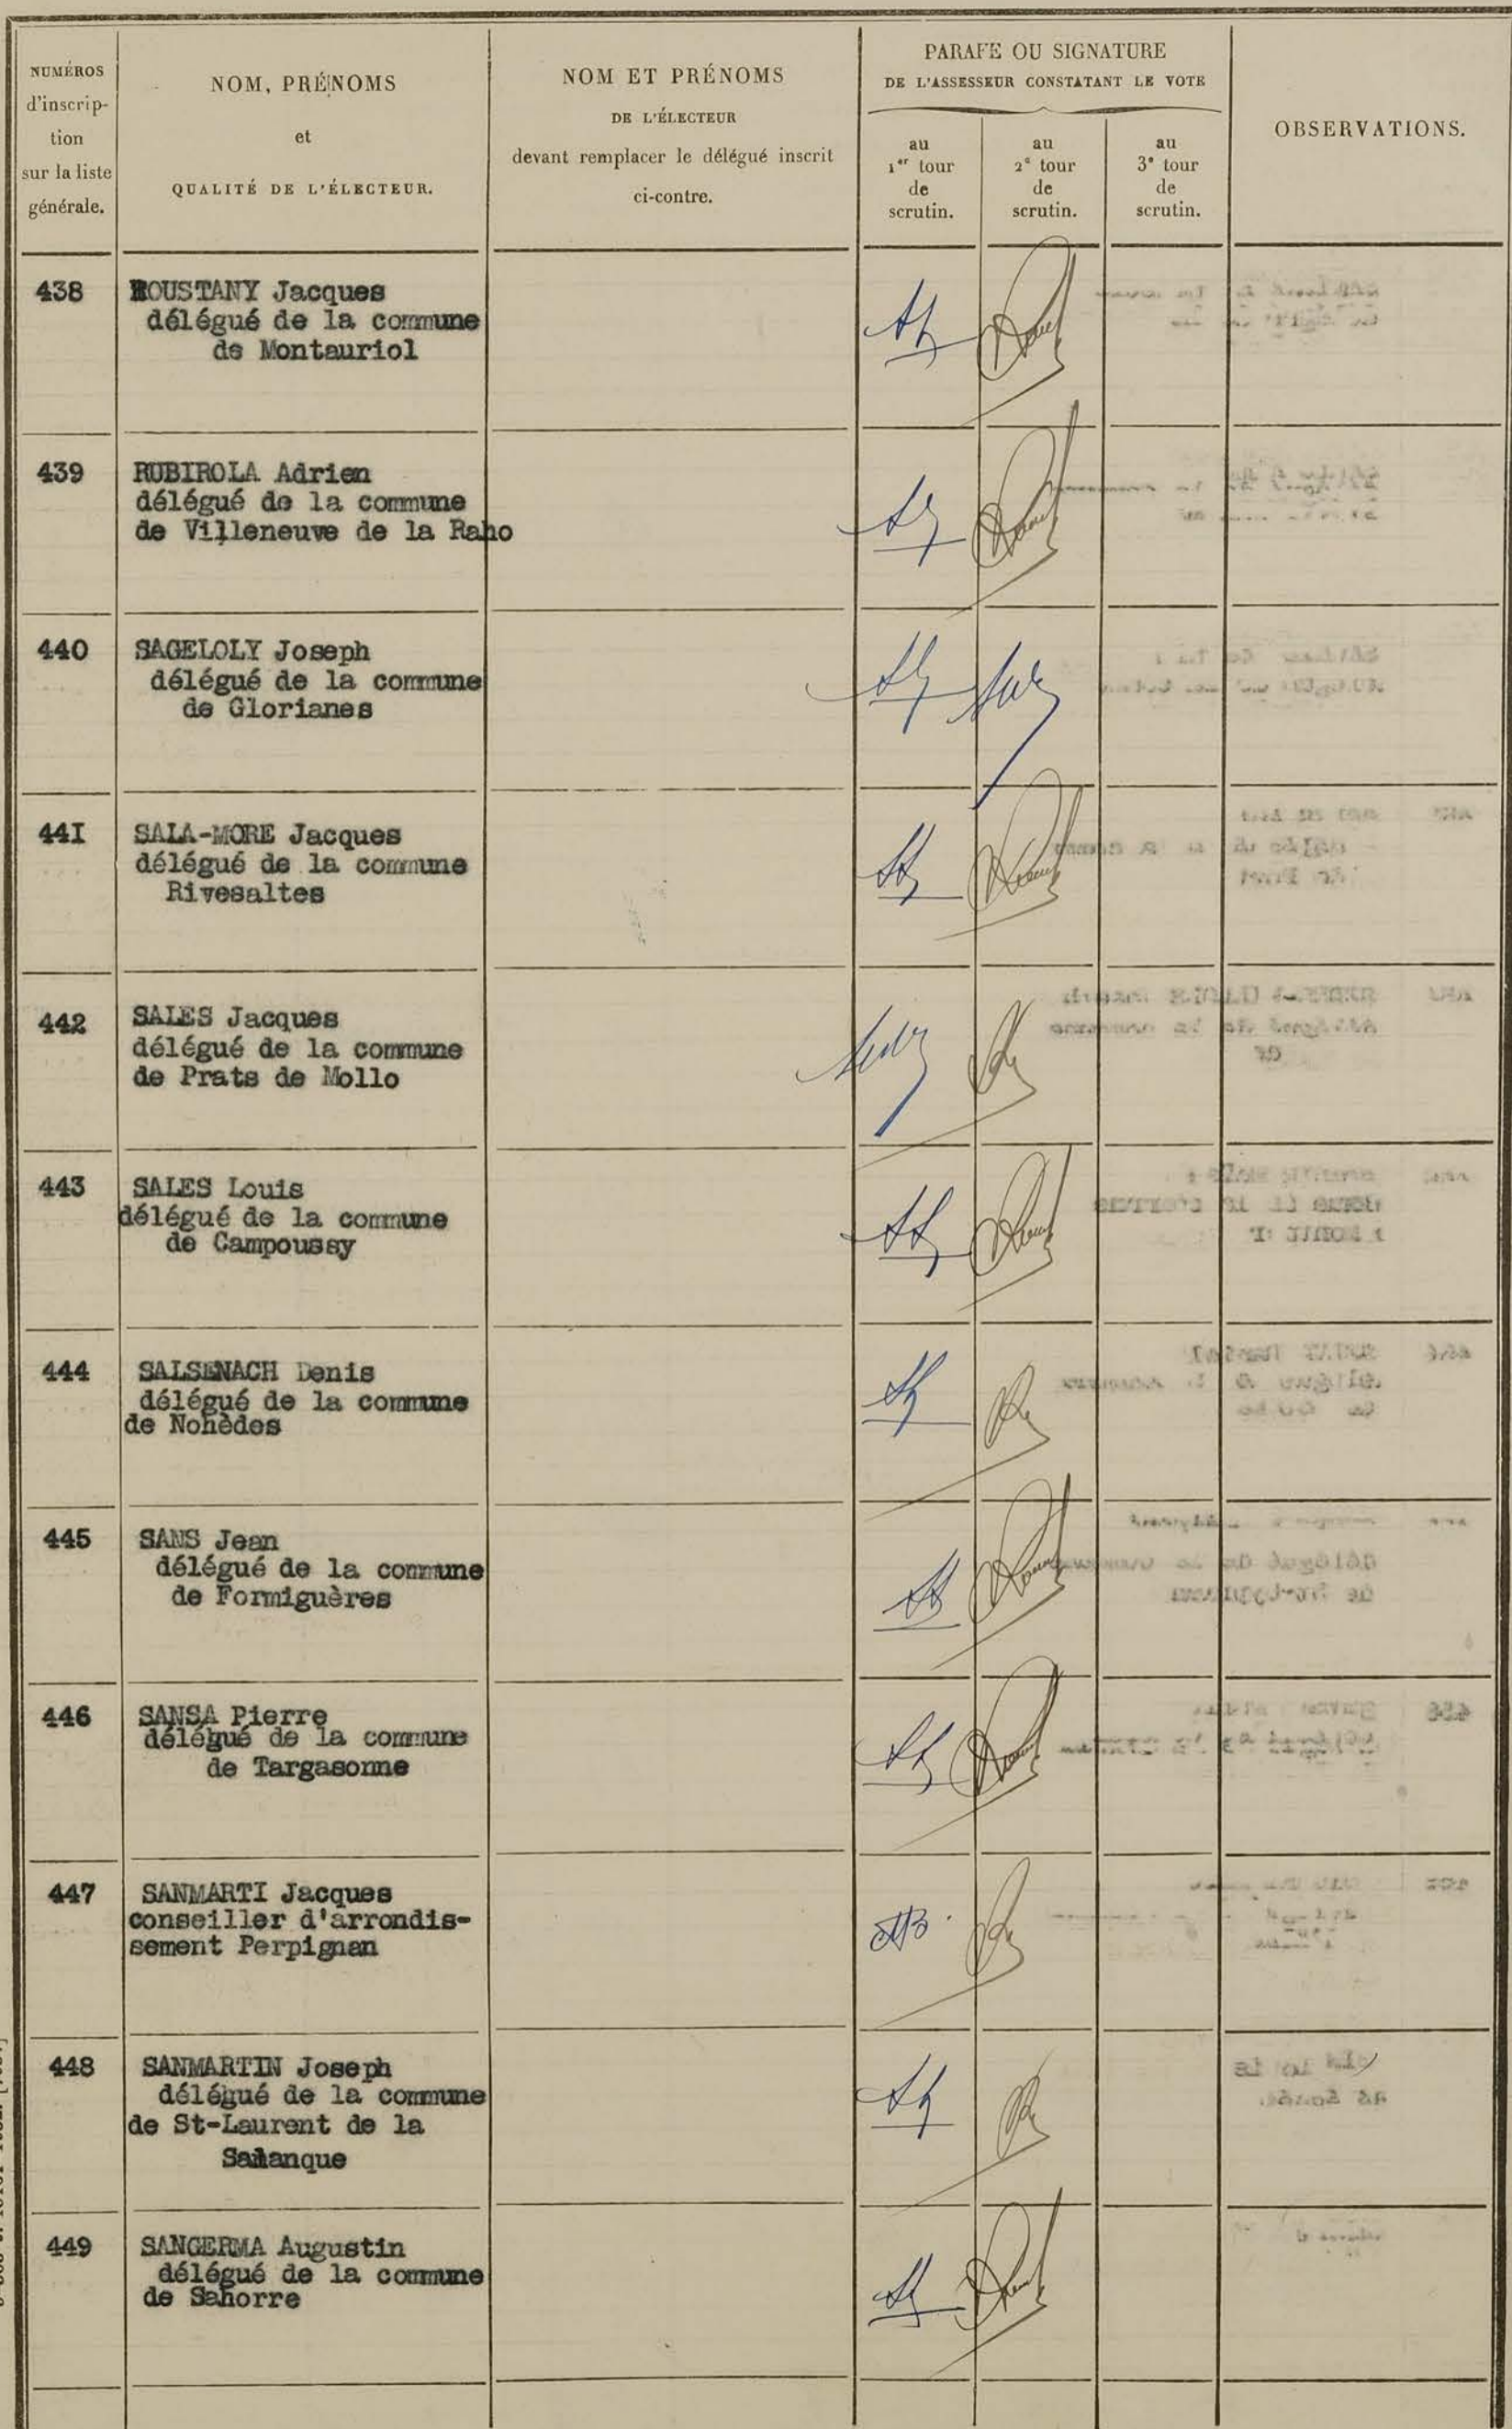 NUMÉROS
d'inscrip-
tion
sur la liste
générale.
NOM, PRÉNOMS
et
QUALITÉ DE L'ÉLECTEUR.
NOM ET PRÉNOMS
DE L'ÉLECTEUR
devant remplacer le délégué inscrit
ci-contre.
PARAFE OU SIGNATURE
DE L'ASSESSEUR CONSTATANT LE VOTE
au
1er tour
de
scrutin.
au
2e tour
de
scrutin.
au
3e tour
de
scrutin.
OBSERVATIONS.
438 ROUSTANY Jacques
délégué de la commune
de Montauriol
439 RUBIROLA Adrien
délégué de la commune
de Villeneuve de la Raho
440 SAGELOLY Joseph
délégué de la commune
de Glorianes
44I SALA-MORE Jacques
délégué de la commune
Rivesaltes
442 SALES Jacques
délégué de la commune
de Prats de Mollo
443 SALES Louis
délégué de la commune
de Campoussy
444 SALSENACH Denis
délégué de la commune
de Nohèdes
445 SANS Jean
délégué de la commune
de Formiguères
446 SANSA Pierre
délégué de la commune
de Targasonne
447 SANMARTI Jacques
conseiller d'arrondis-
sement Perpignan
448 SANMARTIN Joseph
délégué de la commune
de St-Laurent de la
Salanque
449 SANGERMA Augustin
délégué de la commune
de Sahorre